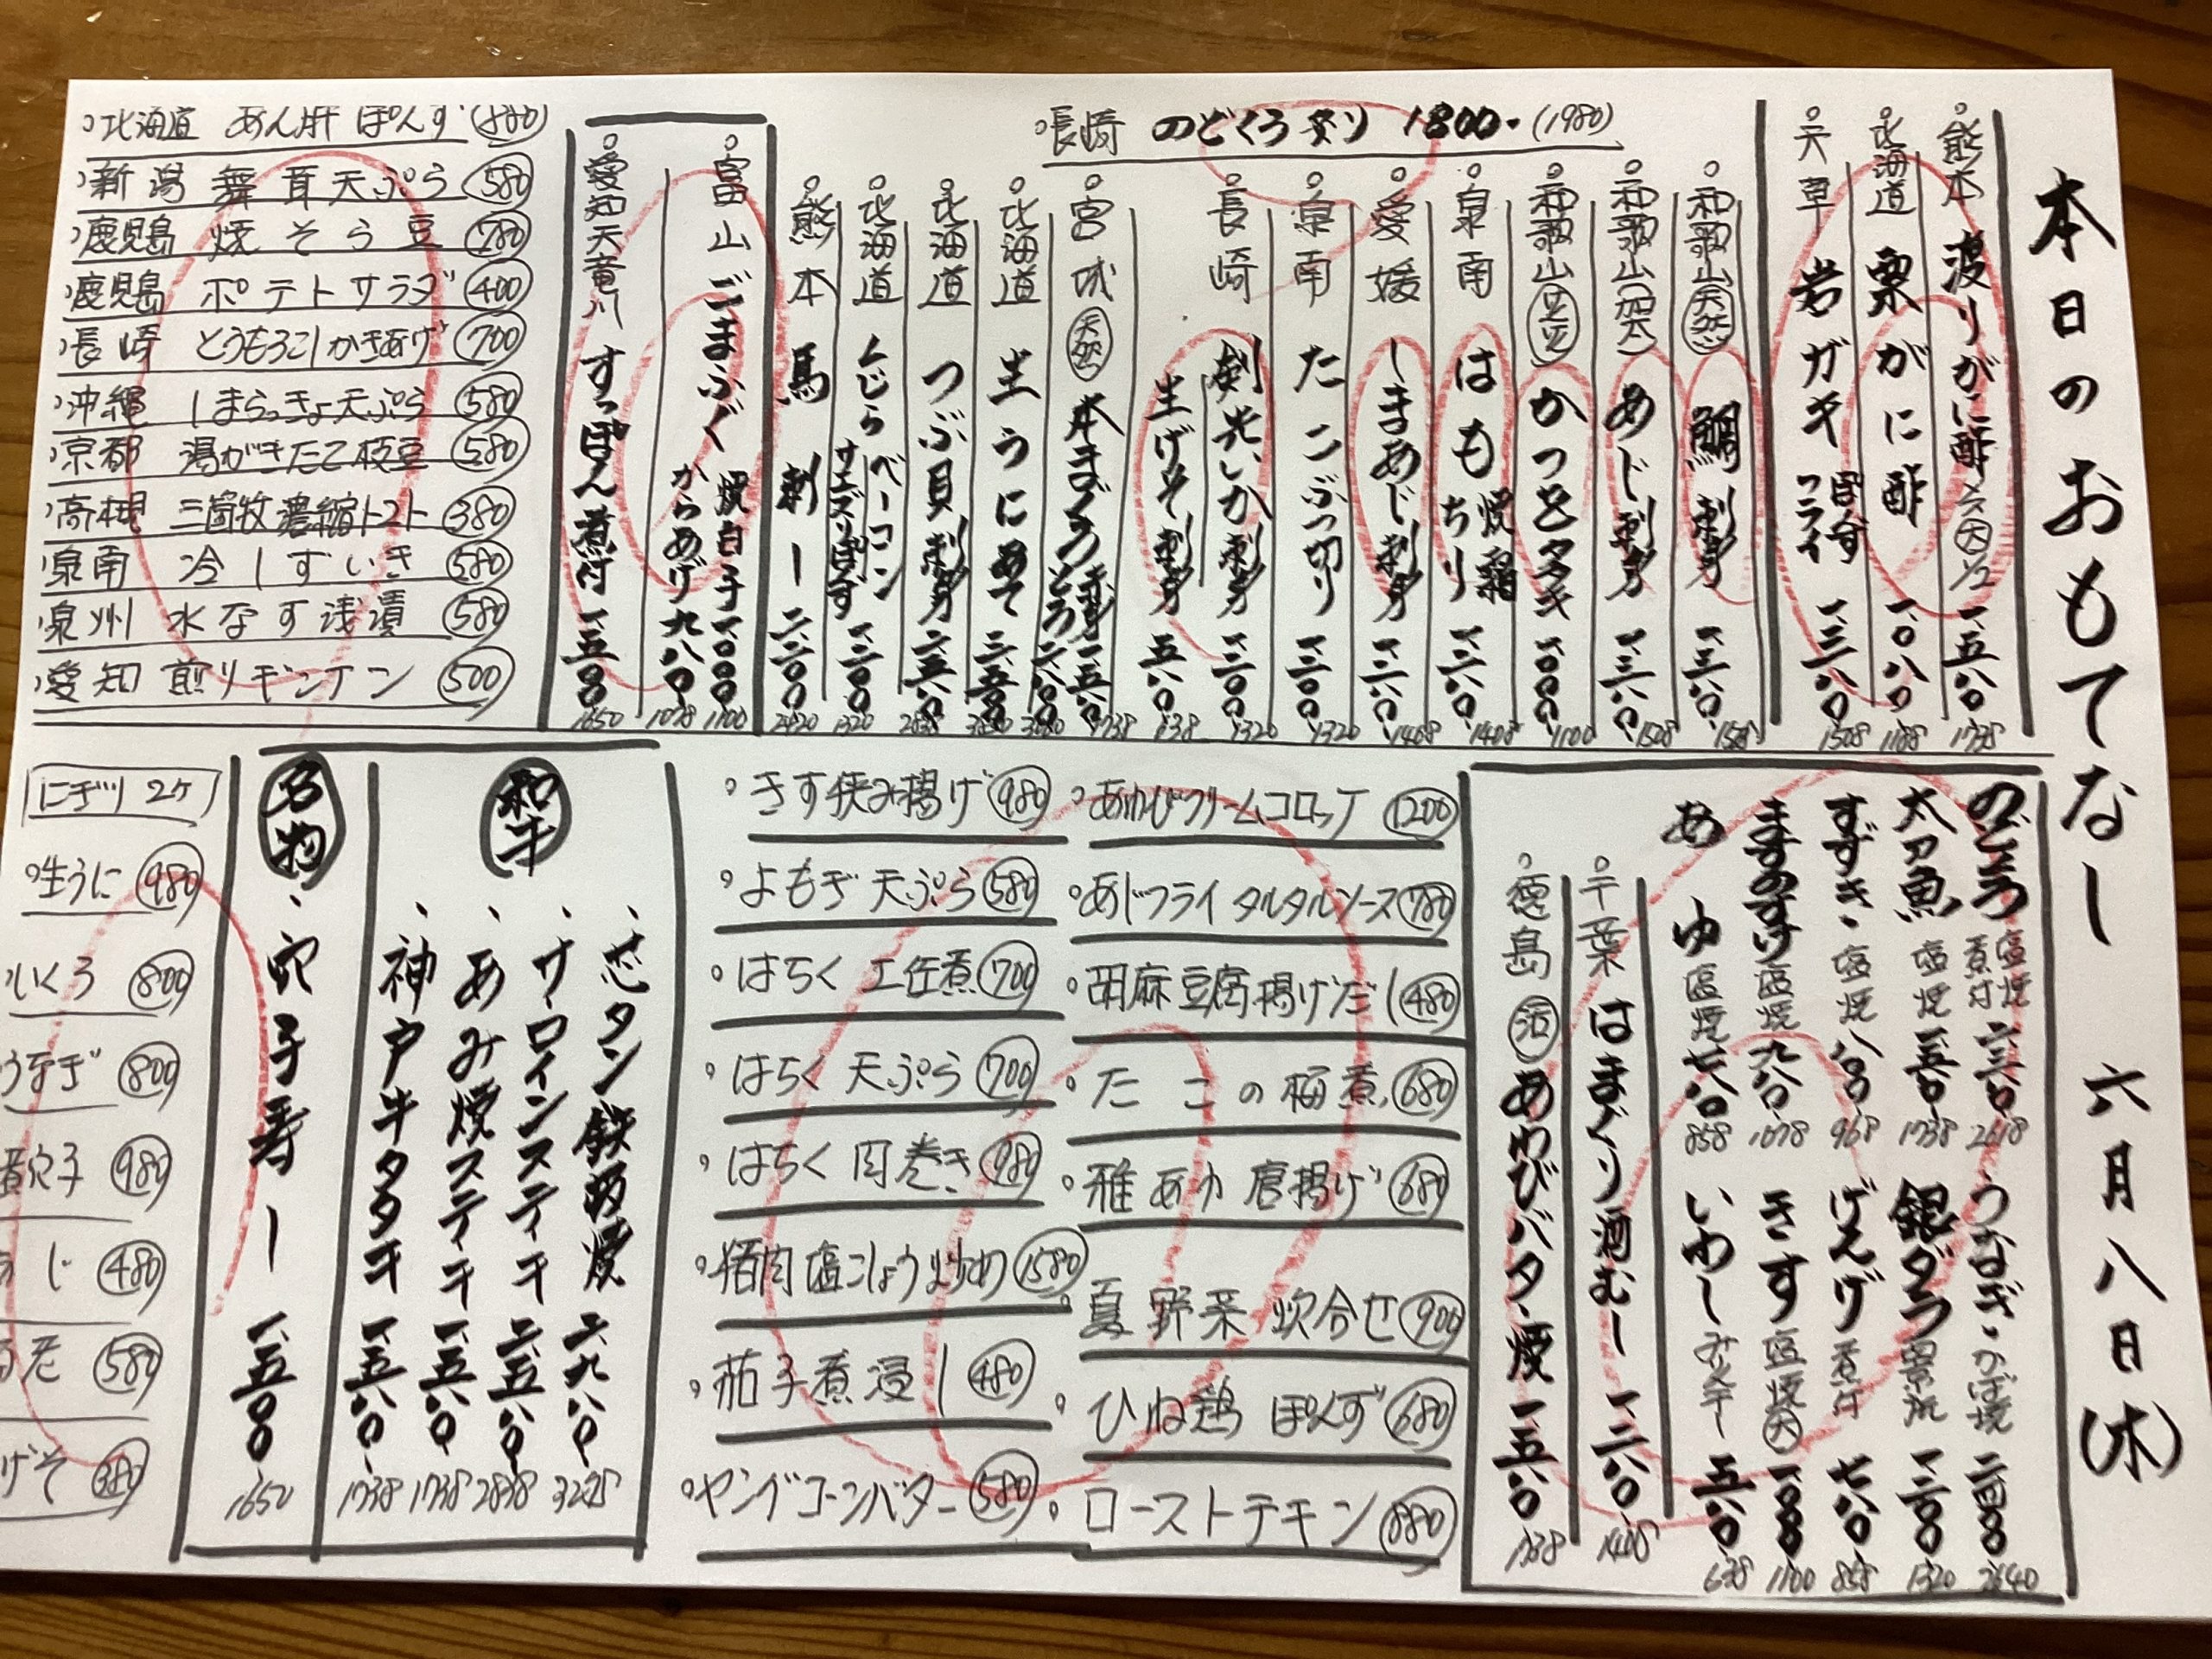 本日のおもてなし 六月八日(木)
熊本 渡りがに酢 大 1/2 一、五八〇 1738
北海道 栗がに酢 一、〇八〇 1188
天草 岩ガキ ぽんず フライ 一、三八〇 1508
長崎 のどくろ炙り 1800. (1980)
和歌山 天然 鯛 刺身 一、三八〇 1508
和歌山(加太) あじ刺身 一、三八〇 1508
和歌山 かつをタタキ 一、〇〇〇 1100
泉南 はも 焼霜 ちり 一、二八〇 1408
愛媛 しまあじ刺身 一、二八〇 1408
泉南 たこぶつ切り 一、二〇〇 1320
長崎 剣先いか刺身 一、二〇〇 1320
生げそ刺身 五八〇 638
宮城 天然 本まぐろ 赤身 一、五八〇 1738
とろ 二、八〇〇 3080
北海道 生うにあて 三、五〇〇 3850
北海道 つぶ貝刺身 二、五八〇 2838
北海道 くじら ベーコン サエズリぽんず 一、二〇〇 1320
熊本 馬刺し 二、二〇〇 2420
富山 ごまふぐ 焼白子 一、〇〇〇 1100
からあげ 九八〇 1078
愛知天竜川 すっぽん煮付 一、五〇〇 1650
北海道 あん肝 ぽんず (880)
新潟 舞茸天ぷら 580
鹿児島 焼そら豆 780
鹿児島 ポテトサラダ 400
長崎 とうもろこしかきあげ 700
沖縄 しまらっきょ天ぷら 580
京都 湯がきたて枝豆 580
高槻 三箇牧濃縮トマト 380
泉南 冷しずいき 580
泉州 水なす浅漬 580
愛知 煎りギンナン 500
のどくろ 塩焼 煮付 二、三八〇 2618
太刀魚 塩焼 一、五八〇 1738
すずき 塩焼 八八〇 968
ますのすけ 塩焼 九八〇 1078
あゆ 塩焼 七八〇 858
うなぎ かば焼 二、四〇〇 2640
銀ダラ 西京漬 一、二〇〇 1320
げんげ 煮付 七八〇 858
きす 塩焼 大 一、〇〇〇 1100
いわし 五八〇 638
千葉 はまぐり酒むし 一、二八〇 1408
徳島 活 あわびバター焼 一、五八〇 1738
あわびクリームコロッケ 1200
あじフライ タルタルソース 780
胡麻豆腐揚げだし 480
たこの梅煮 680
稚あゆ 唐揚げ 680
夏野菜 炊合せ 900
ひね鶏 ぽんず 680
ローストチキン 880
きす挟み揚げ 980
よもぎ天ぷら 580
はちく 土佐煮 700
はちく 天ぷら 700
はちく 肉巻き 980
猪肉塩こしょう炒め 1580
茄子煮浸し 480
ヤングコーンバター 580
和牛
芯タン鉄板焼 二、九八〇 3278
サーロインステーキ 二、五八〇 2838
あみ焼ステーキ 一、五八〇 1738
神戸牛タタキ 一、五八〇 1738
名物
穴子寿し 一、五〇〇 1650
にぎり 2ケ
生うに 980
いくら 800
うなぎ 800
煮穴子 980
じ 480
580
げそ 380